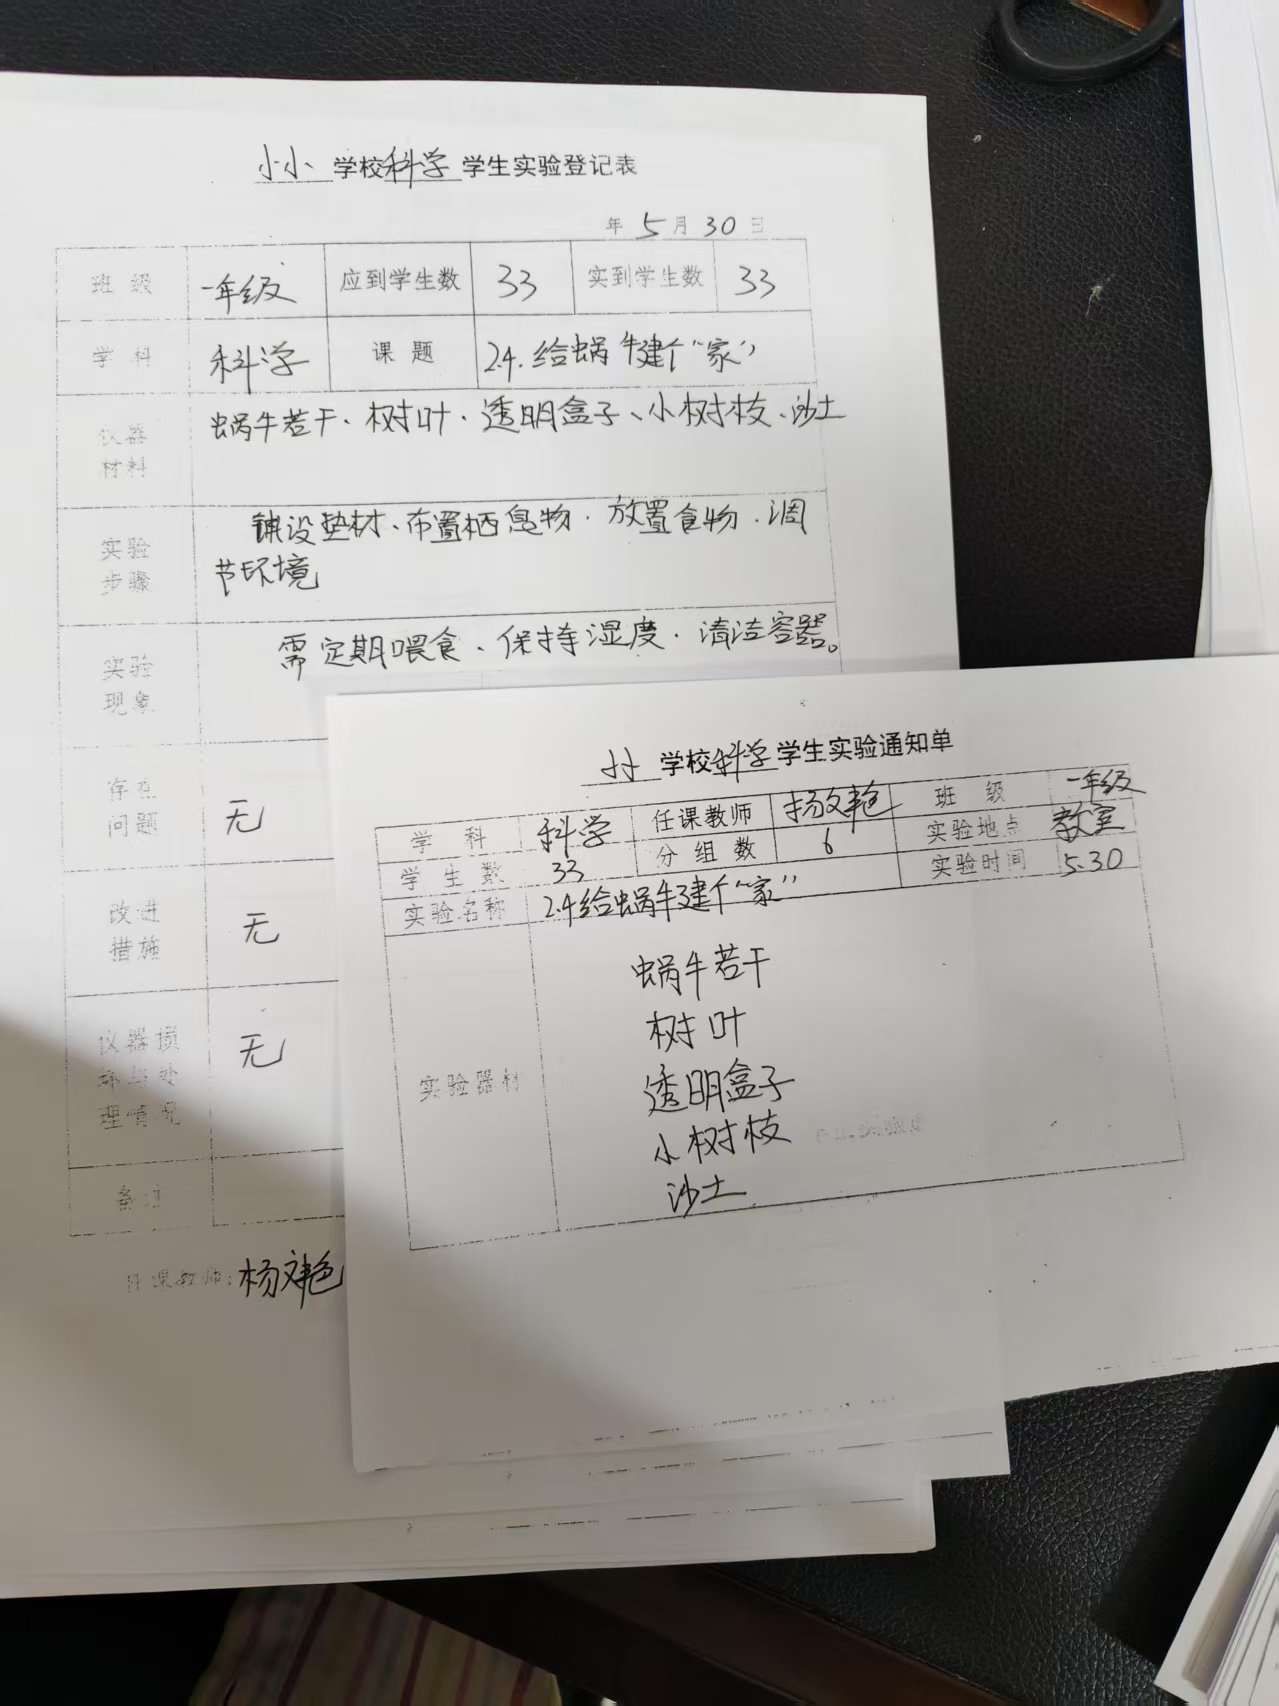 小小 学校 科学 学生实验登记表
年 5 月 30 日
班 级 一年级 应到学生数 33 实到学生数 33
学 科 科学 课 题 2.4.给蜗牛建个“家”
仪器材料 蜗牛若干、树叶、透明盒子、小树枝、沙土
实验步骤 铺设垫材、布置栖息物、放置食物、调
节环境
实验现象 需定期喂食、保持湿度、清洁容器。
存在问题 无
改进措施 无
仪器损坏与处理情况 无
备注
任课教师：杨文艳
小小 学校 科学 学生实验通知单
学 科 科学 任课教师 杨文艳 班 级 一年级
学 生 数 33 分 组 数 6 实验地点 教室
实验名称 2.4给蜗牛建个“家” 实验时间 5.30
实验器材
蜗牛若干
树叶
透明盒子
小树枝
沙土